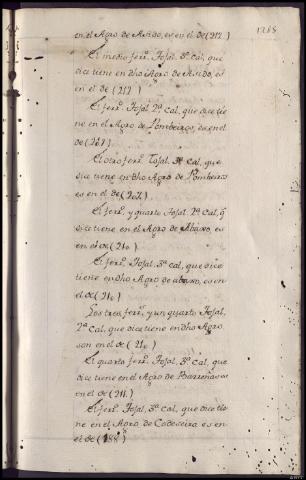 1265
en el Agro de Asido, es en el de (212.)
El medio ferr.º Tojal 3ª Cal, que
dice tiene en dho Agro de Asido, es
en el de (212.)
El ferr.º Tojal 2ª Cal, que dice tie
ne en el Agro de Pombeiros, es en el
de (207)
El otro ferr.º Tojal 3ª Cal, que
dice tiene en dho Agro de Pombeiros
es en el de (202.)
El ferr.º y quarto Tojal 2ª Cal, q̃
dice tiene en el Agro de Abaxo, es
en el de (210.)
El ferr.º Tojal 3ª Cal, que dice
tiene en dho Agro de abaxo, es en
el de (210.)
Los tres ferr.s y un quarto Tojal,
2ª Cal, que dice tiene en dho Agro
son en el de (210.)
El quarto ferr.º Tojal 3ª Cal, que
dice tiene en el Agro de Barreiras es
en el de (211.)
El ferr.º Tojal 3ª Cal, que dice tie
ne en el Agro de Codeseira es en
el de (188)